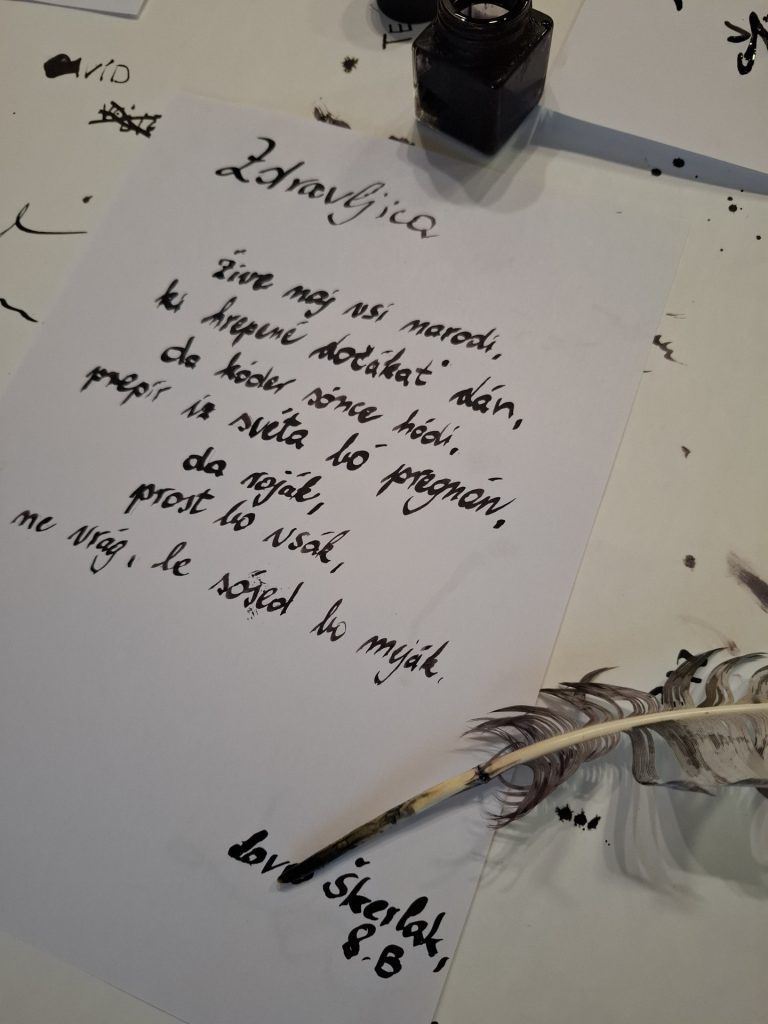 Zdravljica
Žive naj vsi narodi,
ki hrepené dočákat' dán,
da kóder sónce hódi,
prepír iz svéta bó pregnán,
da roják,
prost bo vsák,
ne vrág, le sósed bo meják.
Škerlak,
8. B